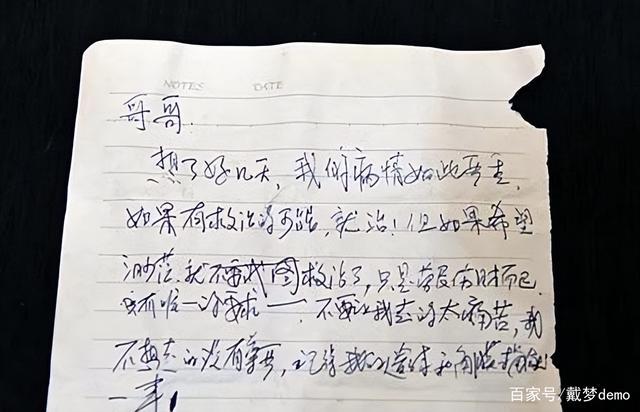 NOTES DATE
哥哥.
想了好几天,我的病情如此严重,
如果有救治的可能,就治!但如果希望
渺茫.就不要试图救治了,只是劳民伤财而已.
有唯一的要求——.不要让我走的太痛苦,我
不想走的没有尊严,记得我的遗体和角膜捐献
一事,
百家号/戴梦demo